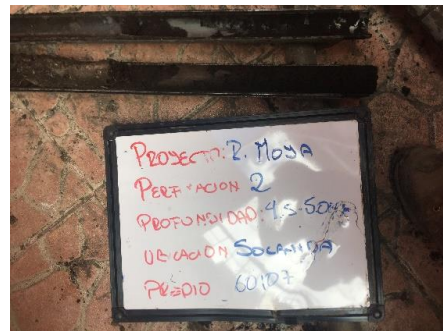 PROYECTO: R. MOYA
PERF ACION 2
PROFUNDIDAD: 4.5-
UBICACIÓN SOCANIDIA
PREDIO 60107